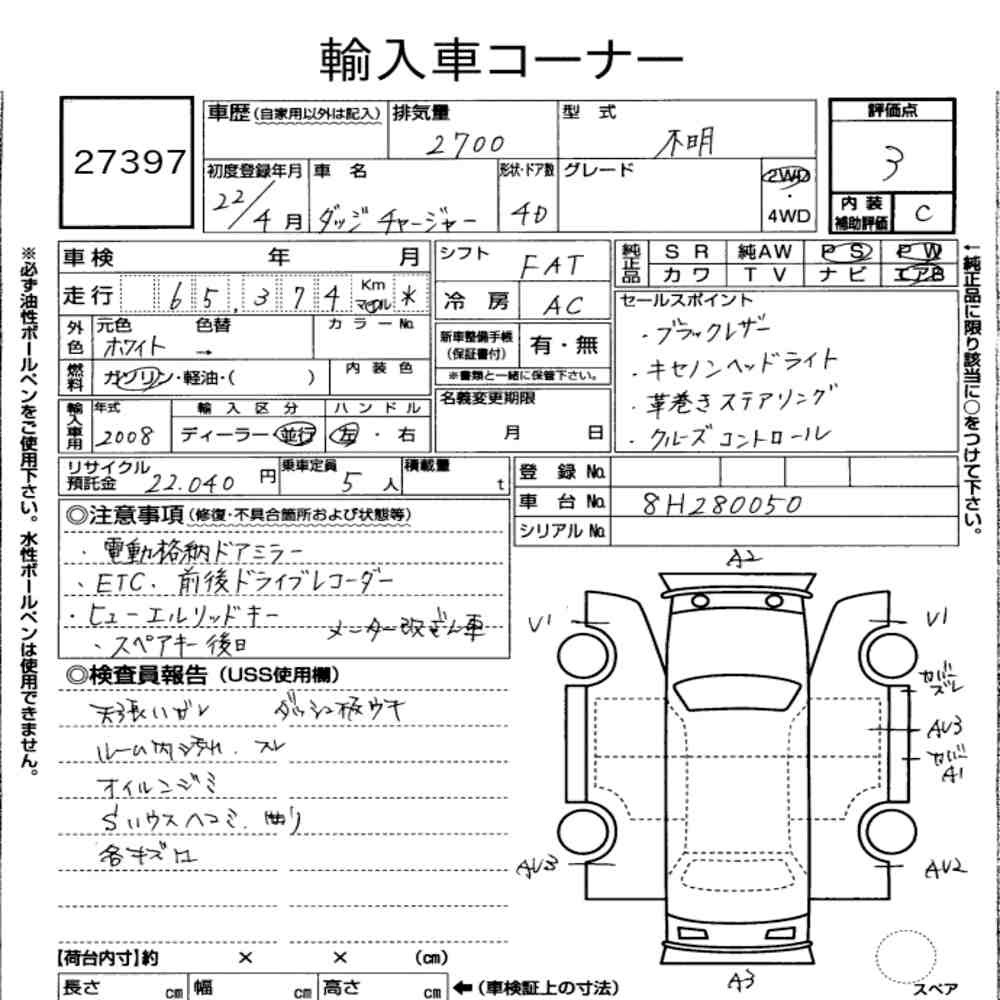 輸入車コーナー
27397
車歴(自家用以外は記入) 排気量 2700 型式 不明
初度登録年月 22/4月 車名 ダッジ チャージャー 形状・ドア数 4D グレード 2WD・4WD
評価点 3
内装補助評価 C
※必ず油性ボールペンをご使用下さい。水性ボールペンは使用できません。
←純正品に限り該当に○をつけて下さい。
車検 年 月
走行 65,374 Km マイル *
外色 元色 ホワイト 色替 → カラーNo.
燃料 ガソリン・軽油・( ) 内装色
輸入車用 年式 2008 輸入区分 ディーラー・並行 ハンドル 左・右
シフト FAT
冷房 AC
新車整備手帳(保証書付) 有・無
※書類と一緒に保管下さい。
名義変更期限
月 日
純正品 SR 純AW PS PW
カワ TV ナビ エアB
セールスポイント
・ブラックレザー
・キセノンヘッドライト
・革巻きステアリング
・クルーズコントロール
リサイクル預託金 22.040円 乗車定員 5人 積載量 t
登録No.
車台No. 8H280050
シリアルNo.
◎注意事項(修復・不具合箇所および状態等)
・電動格納ドアミラー
・ETC. 前後ドライブレコーダー
・ヒューエルリッドキー
・スペアキー後日 メーター改ざん車
◎検査員報告(USS使用欄)
天張いガレ ダッシュ板ウキ
ルーム内汚れ.スレ
オイルニジミ
Sハウスヘコミ.曲り
各キズ
A2
V1 V1
カバーズレ
AU3
カバーA1
AU3 AU2
A3
スペア
【荷台内寸】約 × × (cm)
長さ cm 幅 cm 高さ cm ←(車検証上の寸法)